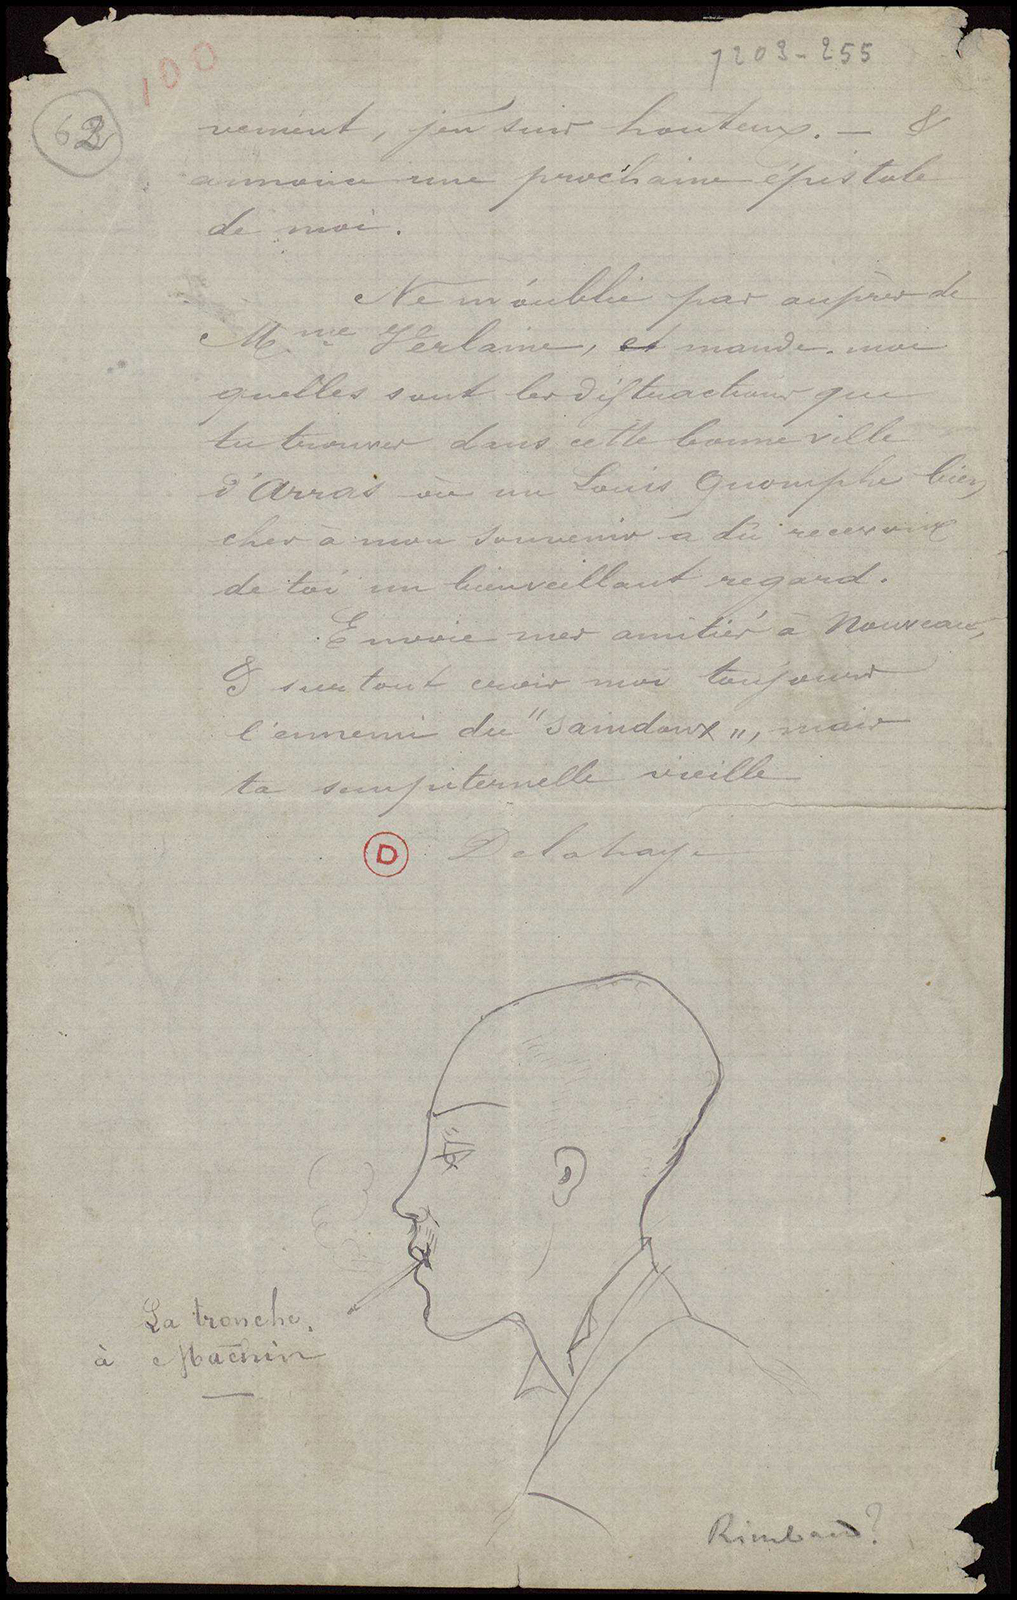 100
7203-255
62
vement, j'en suis honteux. — &
annonce une prochaine épistole
de moi.
Ne m'oublie pas auprès de
Mme Verlaine, et mande-moi
quelles sont les distractions que
tu trouves dans cette bonne ville
d'Arras où un Louis Gnomphe bien
cher à mon souvenir a dû recevoir
de toi un bienveillant regard.
Envoie mes amitiés à Nouveau,
& surtout crois moi toujours
l'ennemi du "saindoux", mais
ta sempiternelle vieille
D Delahaye
La tronche
à Machin
Rimbaud?